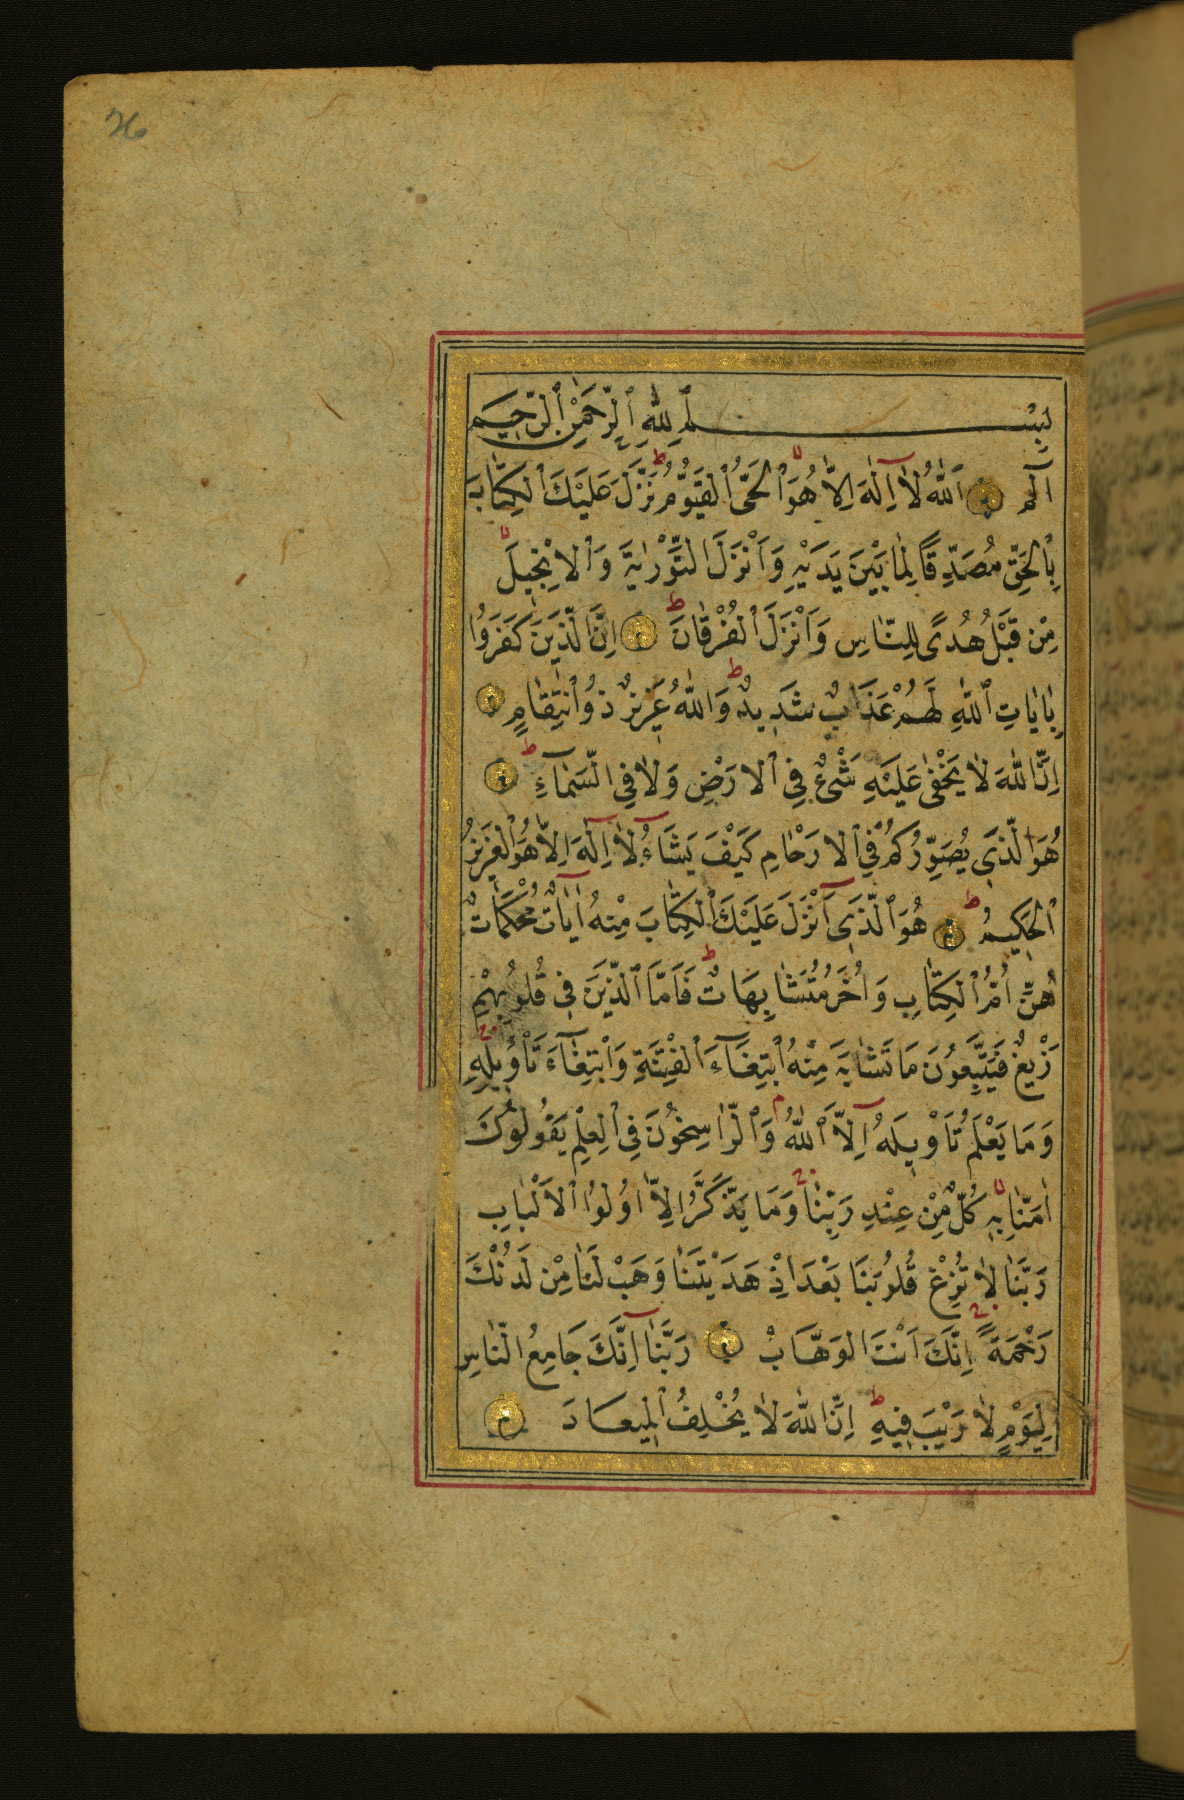 26
بِسْمِ اللهِ الرَّحْمٰنِ الرَّحِيمِ
آلم اَللهُ لَا اِلٰهَ اِلَّا هُوَ الْحَيُّ الْقَيُّومُ نَزَّلَ عَلَيْكَ الْكِتَابَ
بِالْحَقِّ مُصَدِّقًا لِمَا بَيْنَ يَدَيْهِ وَاَنْزَلَ التَّوْرٰيةَ وَالْاِنْجِيلَ
مِنْ قَبْلُ هُدًى لِلنَّاسِ وَاَنْزَلَ الْفُرْقَانَ اِنَّ الَّذِينَ كَفَرُوا
بِاٰيَاتِ اللهِ لَهُمْ عَذَابٌ شَدِيدٌ وَاللهُ عَزِيزٌ ذُو انْتِقَامٍ
اِنَّ اللهَ لَا يَخْفٰى عَلَيْهِ شَىْءٌ فِي الْاَرْضِ وَلَا فِي السَّمَاءِ
هُوَ الَّذِي يُصَوِّرُكُمْ فِي الْاَرْحَامِ كَيْفَ يَشَاءُ لَا اِلٰهَ اِلَّا هُوَ الْعَزِيزُ
الْحَكِيمُ هُوَ الَّذِي اَنْزَلَ عَلَيْكَ الْكِتَابَ مِنْهُ اٰيَاتٌ مُحْكَمَاتٌ
هُنَّ اُمُّ الْكِتَابِ وَاُخَرُ مُتَشَابِهَاتٌ فَاَمَّا الَّذِينَ فِي قُلُوبِهِمْ
زَيْغٌ فَيَتَّبِعُونَ مَا تَشَابَهَ مِنْهُ ابْتِغَاءَ الْفِتْنَةِ وَابْتِغَاءَ تَأْوِيلِهِ
وَمَا يَعْلَمُ تَأْوِيلَهُ اِلَّا اللهُ وَالرَّاسِخُونَ فِي الْعِلْمِ يَقُولُونَ
اٰمَنَّا بِهِ كُلٌّ مِنْ عِنْدِ رَبِّنَا وَمَا يَذَّكَّرُ اِلَّا اُولُوا الْاَلْبَابِ
رَبَّنَا لَا تُزِغْ قُلُوبَنَا بَعْدَ اِذْ هَدَيْتَنَا وَهَبْ لَنَا مِنْ لَدُنْكَ
رَحْمَةً اِنَّكَ اَنْتَ الْوَهَّابُ رَبَّنَا اِنَّكَ جَامِعُ النَّاسِ
لِيَوْمٍ لَا رَيْبَ فِيهِ اِنَّ اللهَ لَا يُخْلِفُ الْمِيعَادَ